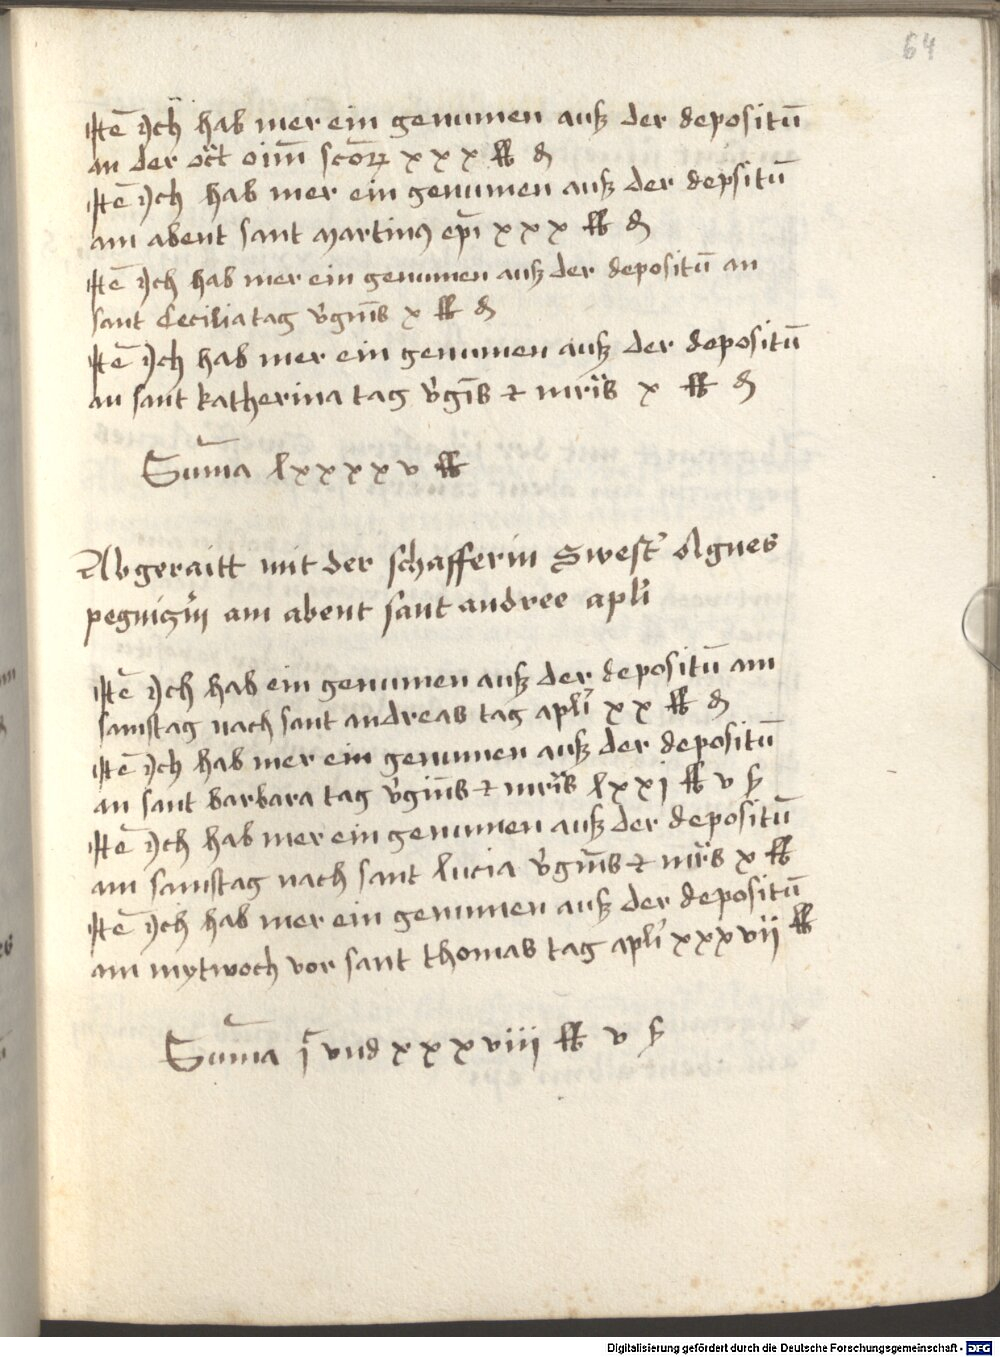 64
Itē Ich hab mer ein genumen auß der depositū
an der oct̄ oīm̄ scōꝝ xxx ℔ ₰
Itē Ich hab mer ein genumen auß der depsitū
am abent sant Martinꝰ ep̄i xxx ℔ ₰
Itē Ich hab mer ein genumen auß der depositū an
sant Cecilia tag v̄gnīs x ℔ ₰
Itē Ich hab mer ein genumen auß der depositū
an sant katherina tag v̄gīs et mr̄is x ℔ ₰
Sum̄a lxxxxv ℔
Abgeraitt mit der schafferin Swest̉ Agnes
pegnicz̉in am abent sant andree apl̉i
Itē Ich hab ein genumen auß der depositū am
samstag nach sant andreas tag apl̉i xx ℔ ₰
Itē Ich hab mer ein genumen auß der depositū
an sant barbara tag v̄ginīs et mr̄is lxxj ℔ v ß
Itē Ich hab mer ein genumen auß der depositū
am samstag nach sant lucia v̄gnīs et mr̄is x ℔
Itē Ich hab mer ein genumen auß der depositū
am mytwoch vor sant thomas tag apl̉i xxxvij ℔
Sum̄a jᶜ vnd xxxviij ℔ v ß
Digitalisierung gefördert durch die Deutsche Forschungsgemeinschaft - DFG